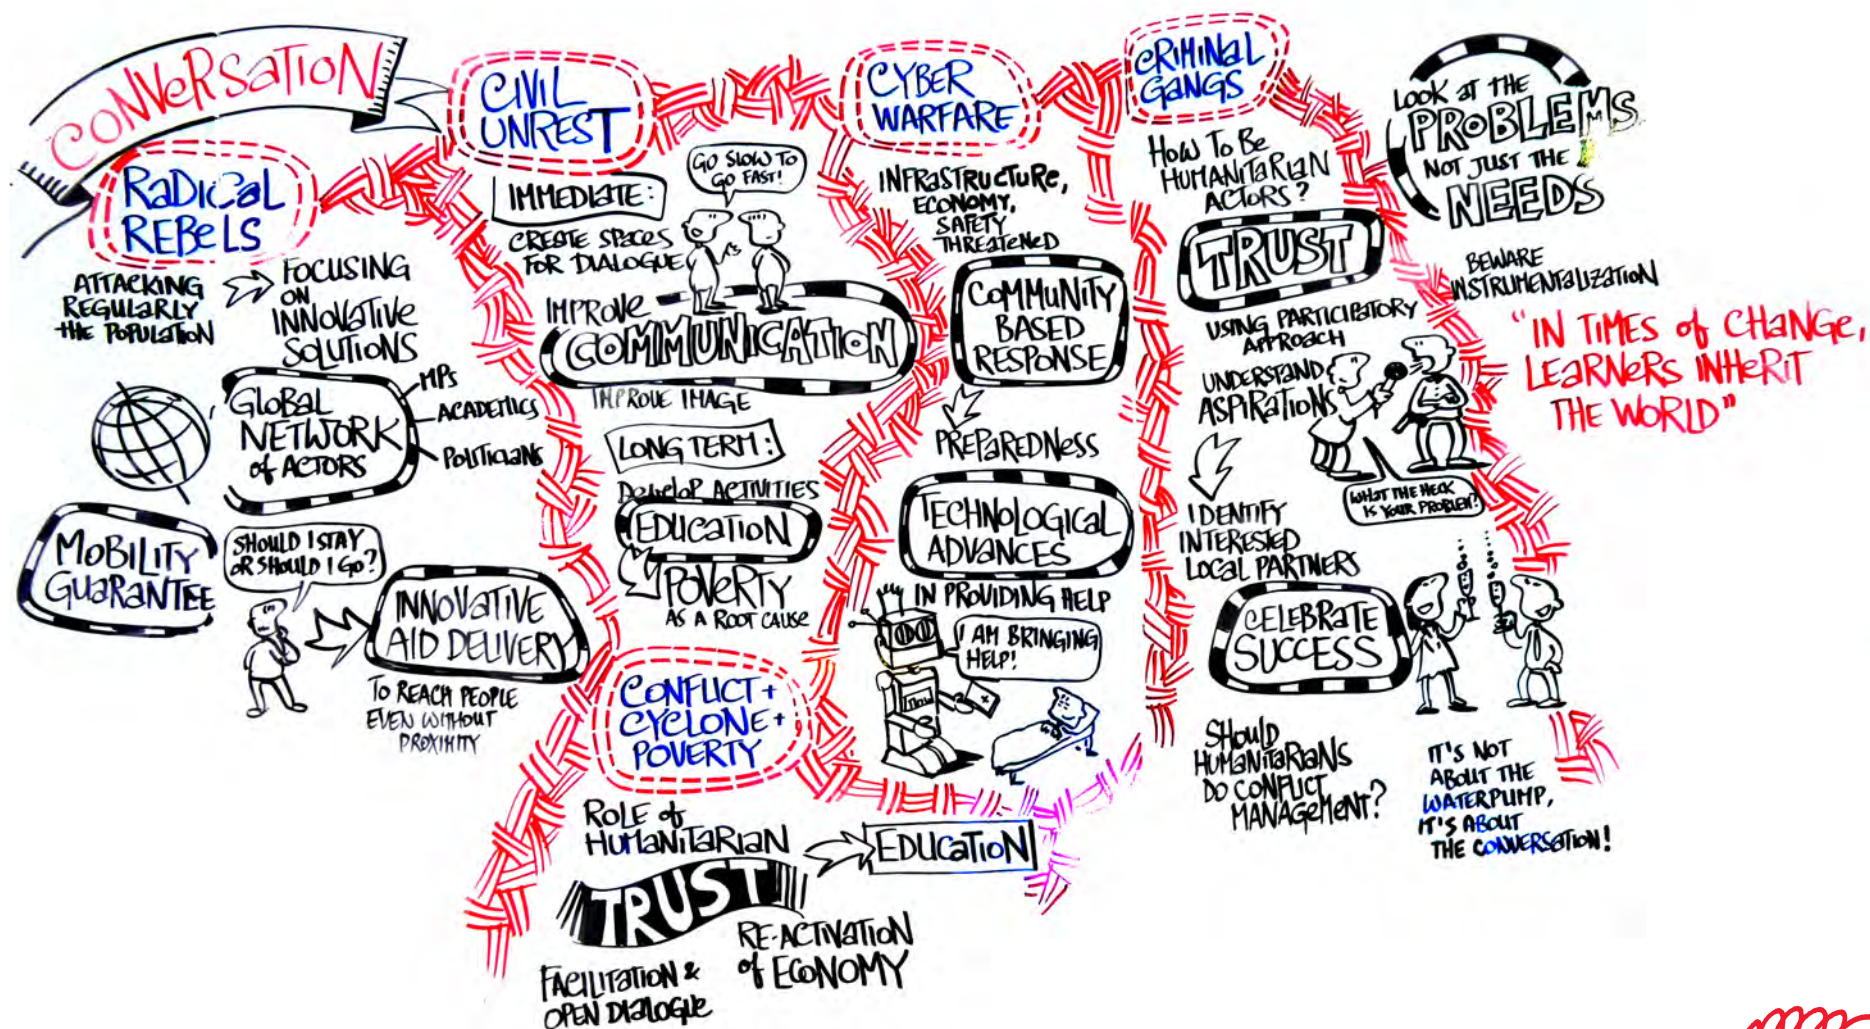 CONVERSATION
RADICAL
REBELS
ATTACKING
REGULARLY
THE POPULATION
FOCUSING
ON
INNOVATIVE
SOLUTIONS
GLOBAL
NETWORK
of ACTORS
MPs
ACADEMICS
POLITICIANS
MOBILITY
GUARANTEE
SHOULD I STAY
OR SHOULD I GO?
INNOVATIVE
AID DELIVERY
TO REACH PEOPLE
EVEN WITHOUT
PROXIMITY
CIVIL
UNREST
IMMEDIATE:
GO SLOW TO
GO FAST!
CREATE SPACES
FOR DIALOGUE
IMPROVE
COMMUNICATION
IMPROVE IMAGE
LONG TERM:
DEVELOP ACTIVITIES
EDUCATION
POVERTY
AS A ROOT CAUSE
CONFLICT +
CYCLONE +
POVERTY
ROLE of
HUMANITARIAN
TRUST
EDUCATION
FACILITATION &
OPEN DIALOGUE
RE-ACTIVATION
of ECONOMY
CYBER
WARFARE
INFRASTRUCTURE,
ECONOMY,
SAFETY
THREATENED
COMMUNITY
BASED
RESPONSE
PREPAREDNESS
TECHNOLOGICAL
ADVANCES
IN PROVIDING HELP
I AM BRINGING
HELP!
CRIMINAL
GANGS
HOW TO BE
HUMANITARIAN
ACTORS?
TRUST
USING PARTICIPATORY
APPROACH
UNDERSTAND
ASPIRATIONS
WHAT THE HECK
IS YOUR PROBLEM?
IDENTIFY
INTERESTED
LOCAL PARTNERS
CELEBRATE
SUCCESS
SHOULD
HUMANITARIANS
DO CONFLICT
MANAGEMENT?
LOOK AT THE
PROBLEMS
NOT JUST THE
NEEDS
BEWARE
INSTRUMENTALIZATION
"IN TIMES of CHANGE,
LEARNERS INHERIT
THE WORLD"
IT'S NOT
ABOUT THE
WATERPUMP,
IT'S ABOUT
THE CONVERSATION!